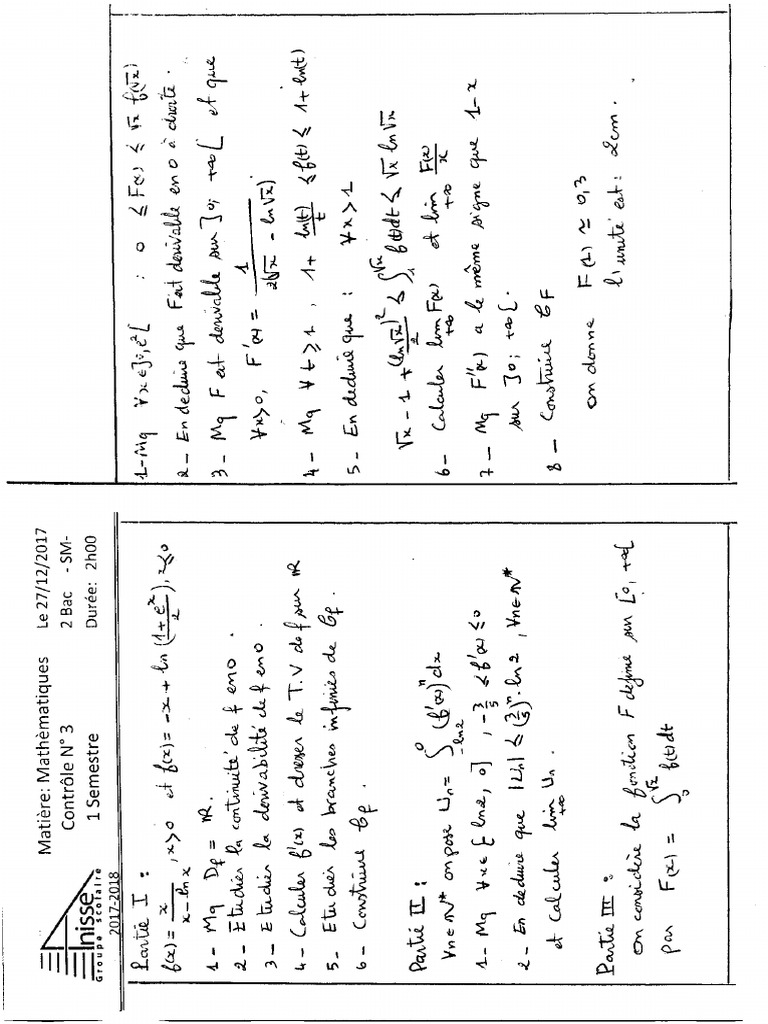 Unisse
Groupe scolaire
2017-2018
Matière: Mathèmatiques
Contrôle N° 3
1 Semestre
Le 27/12/2017
2 Bac - SM-
Durée: 2h00
Partie I :
f(x) = x/(x - ln x) , x>0 et f(x) = -x + ln((1+e^x)/2), x≤0
1 - Mq D_f = ℝ.
2 - Etudier la continuité de f en 0.
3 - Etudier la derivabilité de f en 0.
4 - Calculer f'(x) et dresser le T.V de f sur ℝ
5 - Etudier les branches infinies de ℭf.
6 - Construire ℭf.
Partie II :
∀n∈ℕ* on pose Un = ∫_{-ln2}^{0} (f'(x))^n dx
1 - Mq ∀x∈[-ln2, 0] , -3/5 ≤ f'(x) ≤ 0
2 - En deduire que |Un| ≤ (3/5)^n . ln 2 , ∀n∈ℕ*
et calculer lim_{+∞} Un.
Partie III :
On considère la fonction F définie sur [0, +∞[
par F(x) = ∫_0^{√x} f(t)dt
1 - Mq ∀x∈]0, e²[ : 0 ≤ F(x) ≤ √x f(√x)
2 - En deduire que F est derivable en 0 à droite.
3 - Mq F est derivable sur ]0; +∞[ et que
∀x>0, F'(x) = 1/(2(√x - ln√x))
4 - Mq ∀t≥1 , 1 + ln(t)/t ≤ f(t) ≤ 1 + ln(t)
5 - En deduire que : ∀x>1
√x - 1 + (ln√x)²/2 ≤ ∫_1^{√x} f(t)dt ≤ √x ln√x
6 - Calculer lim_{+∞} F(x) et lim_{+∞} F(x)/x
7 - Mq F''(x) a le même signe que 1-x
sur ]0; +∞[.
8 - Construire ℭF
on donne F(1) ≃ 0,3
l'unité est : 2cm.